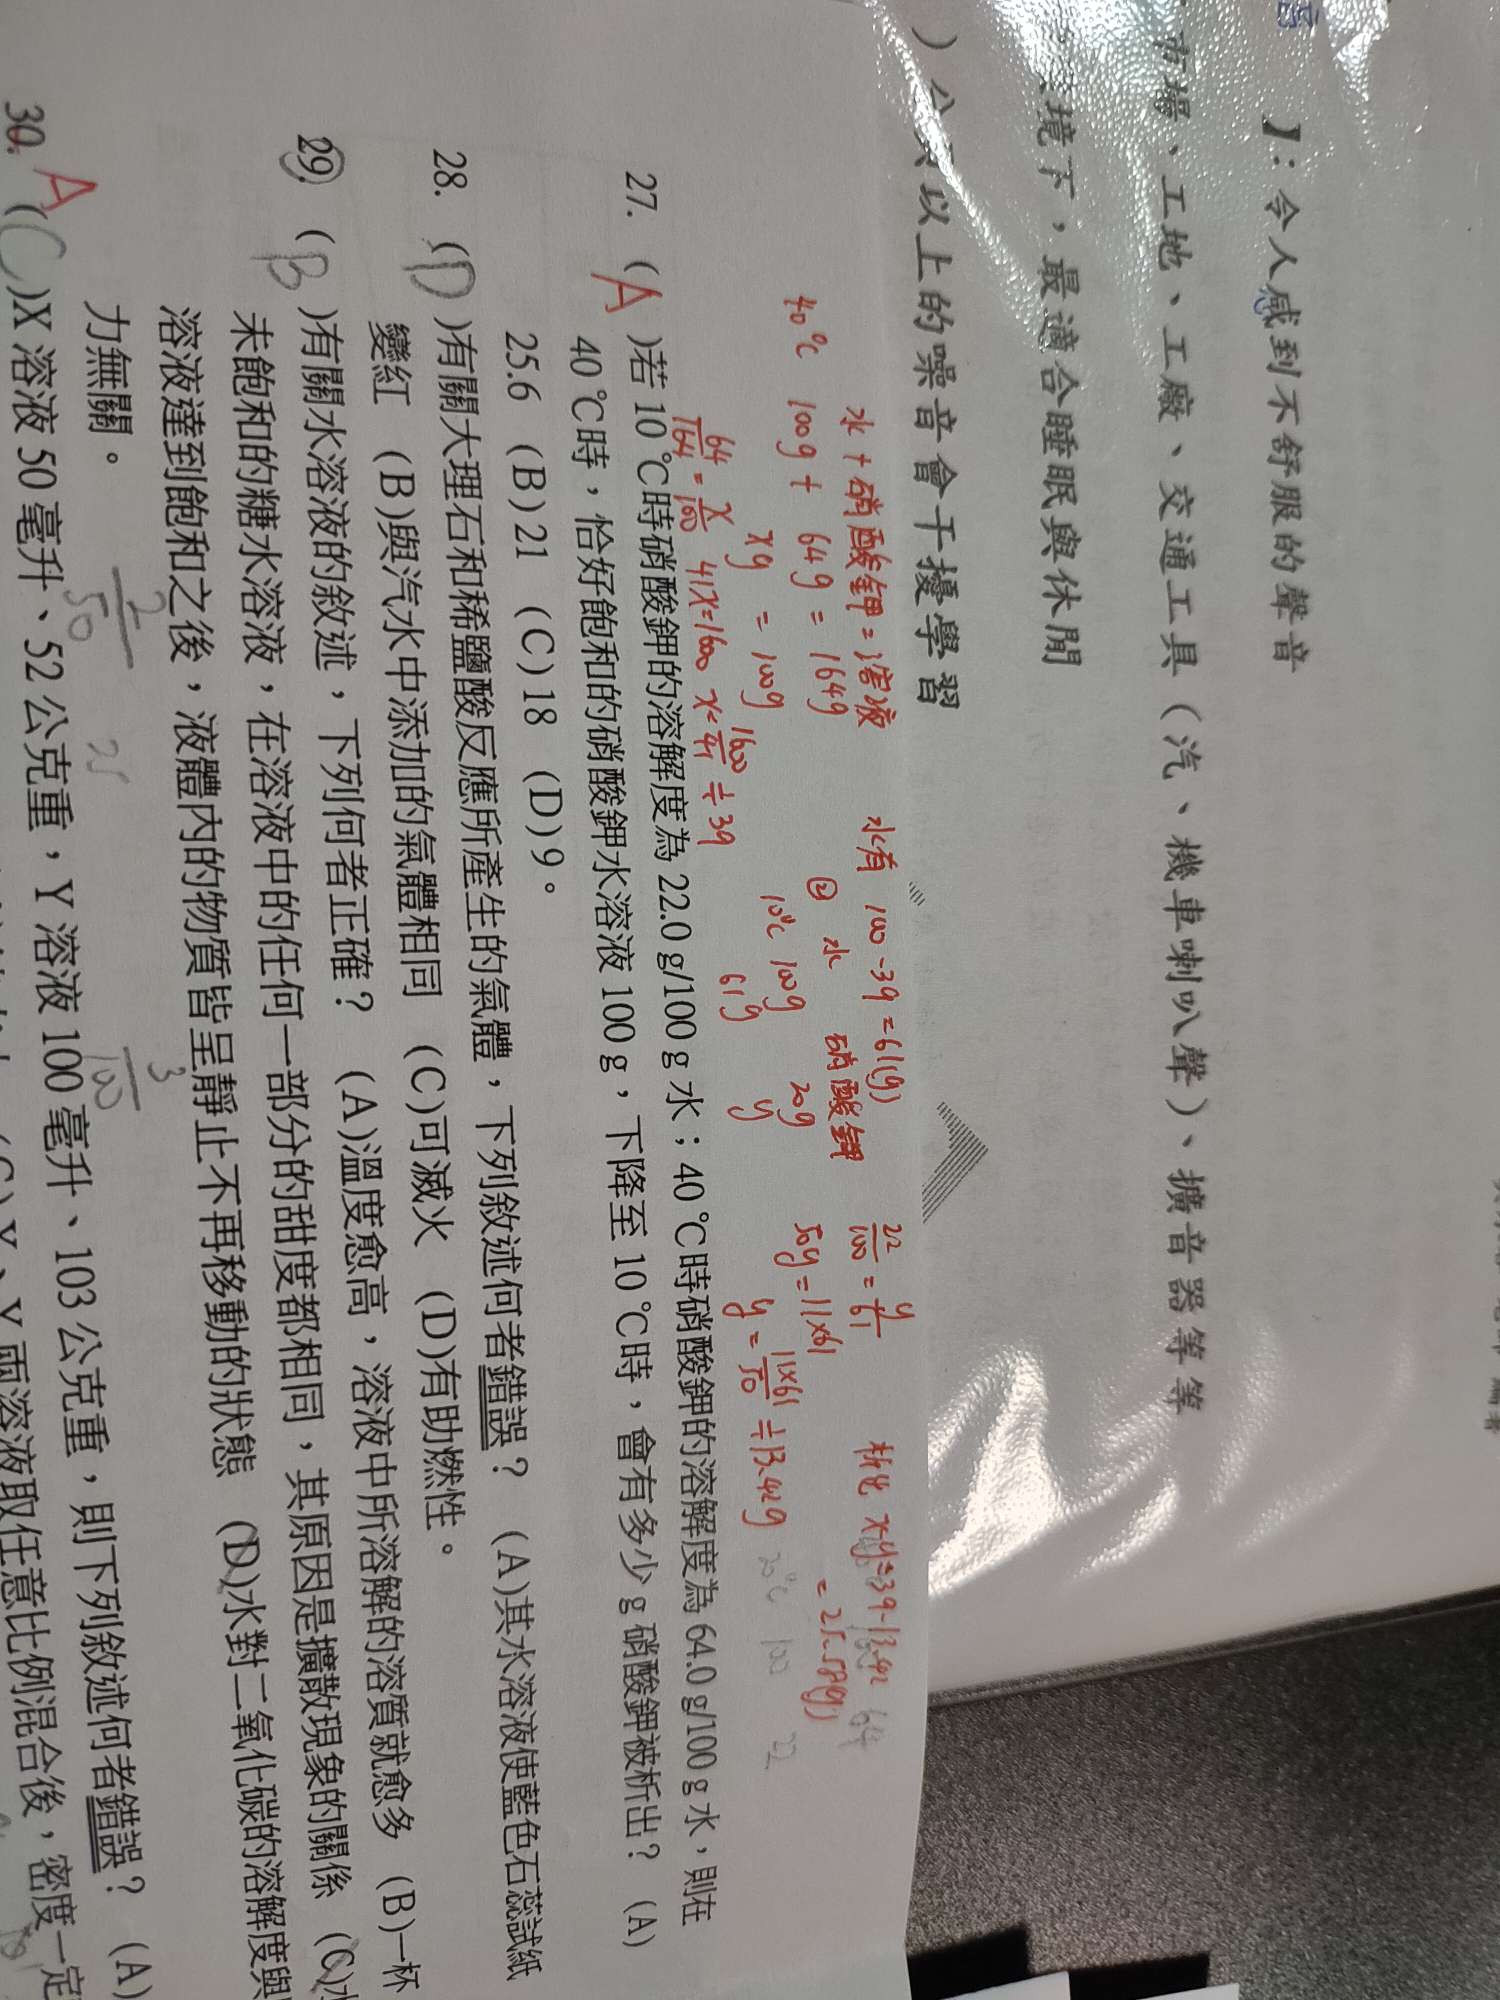 】：令人感到不舒服的聲音
市場、工地、工廠、交通工具（汽、機車喇叭聲）、擴音器等等
境下，最適合睡眠與休閒
以上的噪音會干擾學習
水+硝酸鉀=溶液 水有 100-39=61(g)
40℃ 100g + 64g = 164g
xg = 100g
64/164 = x/100 41x=1600 x=1600/41≒39
② 水 硝酸鉀
10℃ 100g 22g
61g y
22/100 = y/61
50y=11×61
y = 11×61/50 ≒13.42g
析出 x-y=39-13.42
= 25.58(g)
64
20℃ 100 22
27. (A)若 10℃時硝酸鉀的溶解度為 22.0 g/100 g 水；40℃時硝酸鉀的溶解度為 64.0 g/100 g 水，則在
40℃時，恰好飽和的硝酸鉀水溶液 100 g，下降至 10℃時，會有多少 g 硝酸鉀被析出？ (A)
25.6 (B)21 (C)18 (D)9。
28. (D)有關大理石和稀鹽酸反應所產生的氣體，下列敘述何者錯誤？ (A)其水溶液使藍色石蕊試紙
變紅 (B)與汽水中添加的氣體相同 (C)可滅火 (D)有助燃性。
29. (B)有關水溶液的敘述，下列何者正確？ (A)溫度愈高，溶液中所溶解的溶質就愈多 (B)一杯
未飽和的糖水溶液，在溶液中的任何一部分的甜度都相同，其原因是擴散現象的關係 (C)水
溶液達到飽和之後，液體內的物質皆呈靜止不再移動的狀態 (D)水對二氧化碳的溶解度與
力無關。
2/50 3/100
30. A (C)X 溶液 50 毫升、52 公克重，Y 溶液 100 毫升、103 公克重，則下列敘述何者錯誤？ (A)
X、Y 兩溶液取任意比例混合後，密度一定